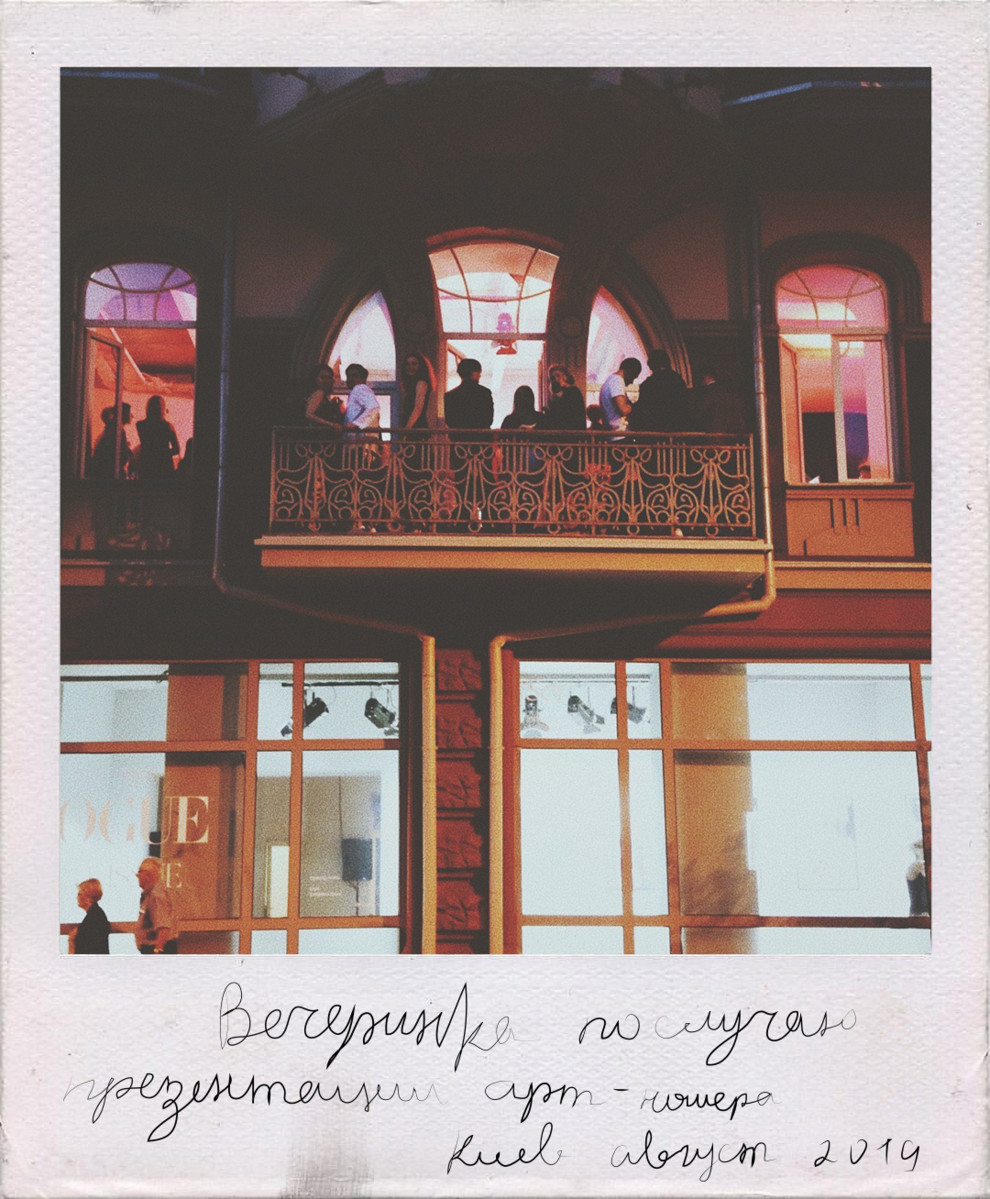 OGUE
ISSUE
Вечеринка по случаю
презентации арт-номера
Киев август 2019